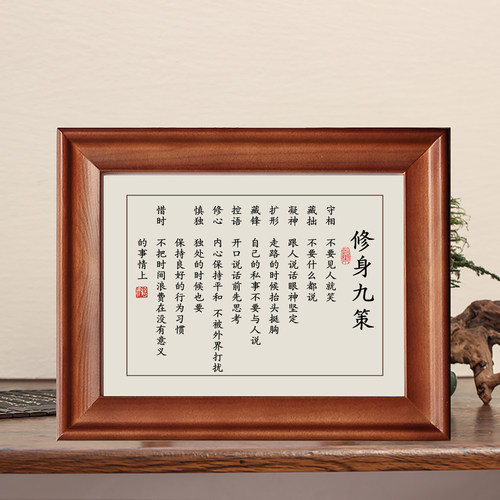 修身九策
守相 不要见人就笑
藏拙 不要什么都说
凝神 跟人说话眼神坚定
扩形 走路的时候抬头挺胸
藏锋 自己的私事不要与人说
控语 开口说话前先思考
修心 内心保持平和 不被外界打扰
慎独 独处的时候也要
保持良好的行为习惯
惜时 不把时间浪费在没有意义
的事情上